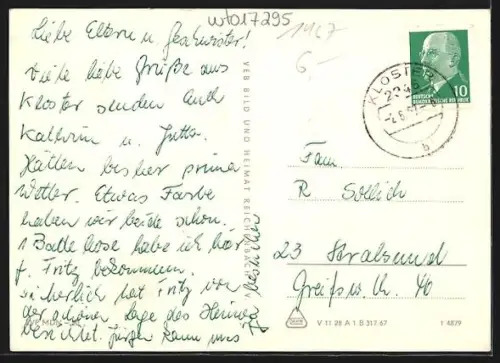 wto17295
1967
6,-
Liebe Eltern u. Geschwister!
Viele liebe Grüße aus
Kloster senden Euch
Kathrin u. Jutta.
Hatten bisher prima
Wetter. Etwas Farbe
haben wir beide schon.
1 Badehose habe ich hier
f. Fritz bekommen.
Sicherlich hat Fritz von
der schönen Lage des Heimes
berichtet. Jürgen kann uns
ja besuchen
VEB BILD UND HEIMAT REICHENBACH i. V.
KLOSTER
2346
b
DEUTSCHE
DEMOKRATISCHE REPUBLIK
10
Fam.
R Sollich
23 Stralsund
Greifsw. Ch. 40
V 11 28 A 1 B 317/67
1 4879